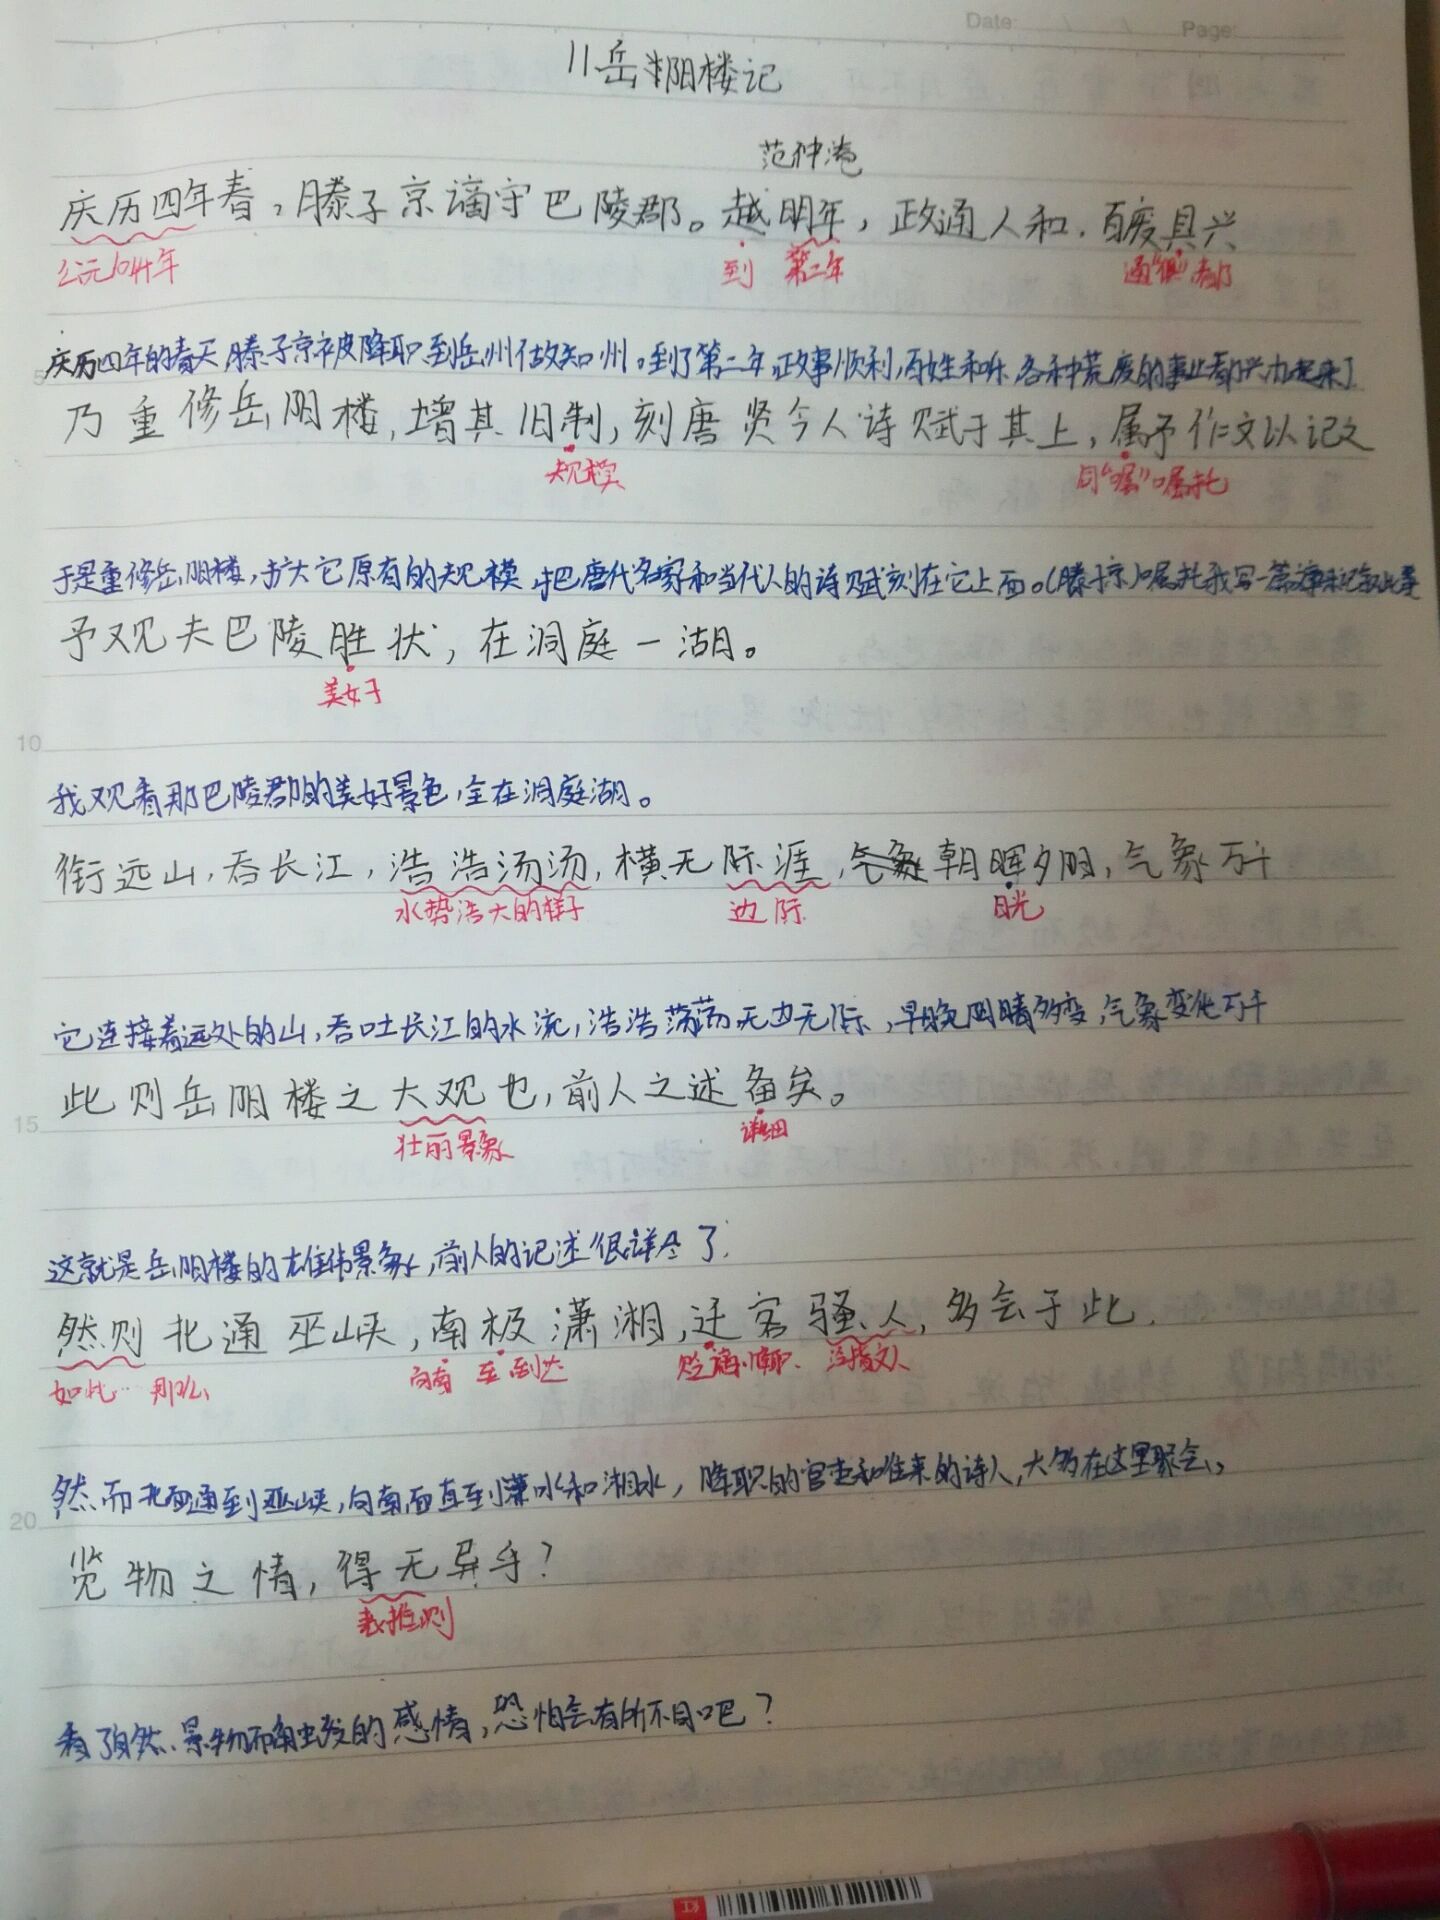 Date: / / Page:
11岳阳楼记
范仲淹
庆历四年春，滕子京谪守巴陵郡。越明年，政通人和，百废具兴
公元1044年 到 第二年 通“俱”都
5
庆历四年的春天，滕子京被降职到岳州做知州。到了第二年，政事顺利，百姓和乐，各种荒废的事业都兴办起来了
乃重修岳阳楼，增其旧制，刻唐贤今人诗赋于其上，属予作文以记之
规模 同“嘱”嘱托
于是重修岳阳楼，扩大它原有的规模，把唐代名家和当代人的诗赋刻在它上面。（滕子京）嘱托我写一篇文章来记叙此事
予观夫巴陵胜状，在洞庭一湖。
美好
10
我观看那巴陵郡的美好景色，全在洞庭湖。
衔远山，吞长江，浩浩汤汤，横无际涯，气象朝晖夕阴，气象万千
水势浩大的样子 边际 日光
它连接着远处的山，吞吐长江的水流，浩浩荡荡无边无际，早晚阴晴多变，气象变化万千
此则岳阳楼之大观也，前人之述备矣。
15
壮丽景象 详细
这就是岳阳楼的雄伟景象，前人的记述很详尽了.
然则北通巫峡，南极潇湘，迁客骚人，多会于此.
如此…那么 向南 至 到达 贬谪降职、诗文人
然而北面通到巫峡，向南面直到潇水和湘水，降职的官吏和往来的诗人，大多在这里聚会，
20
览物之情，得无异乎？
表推测
看了自然景物而触发的感情，恐怕会有所不同吧？
红